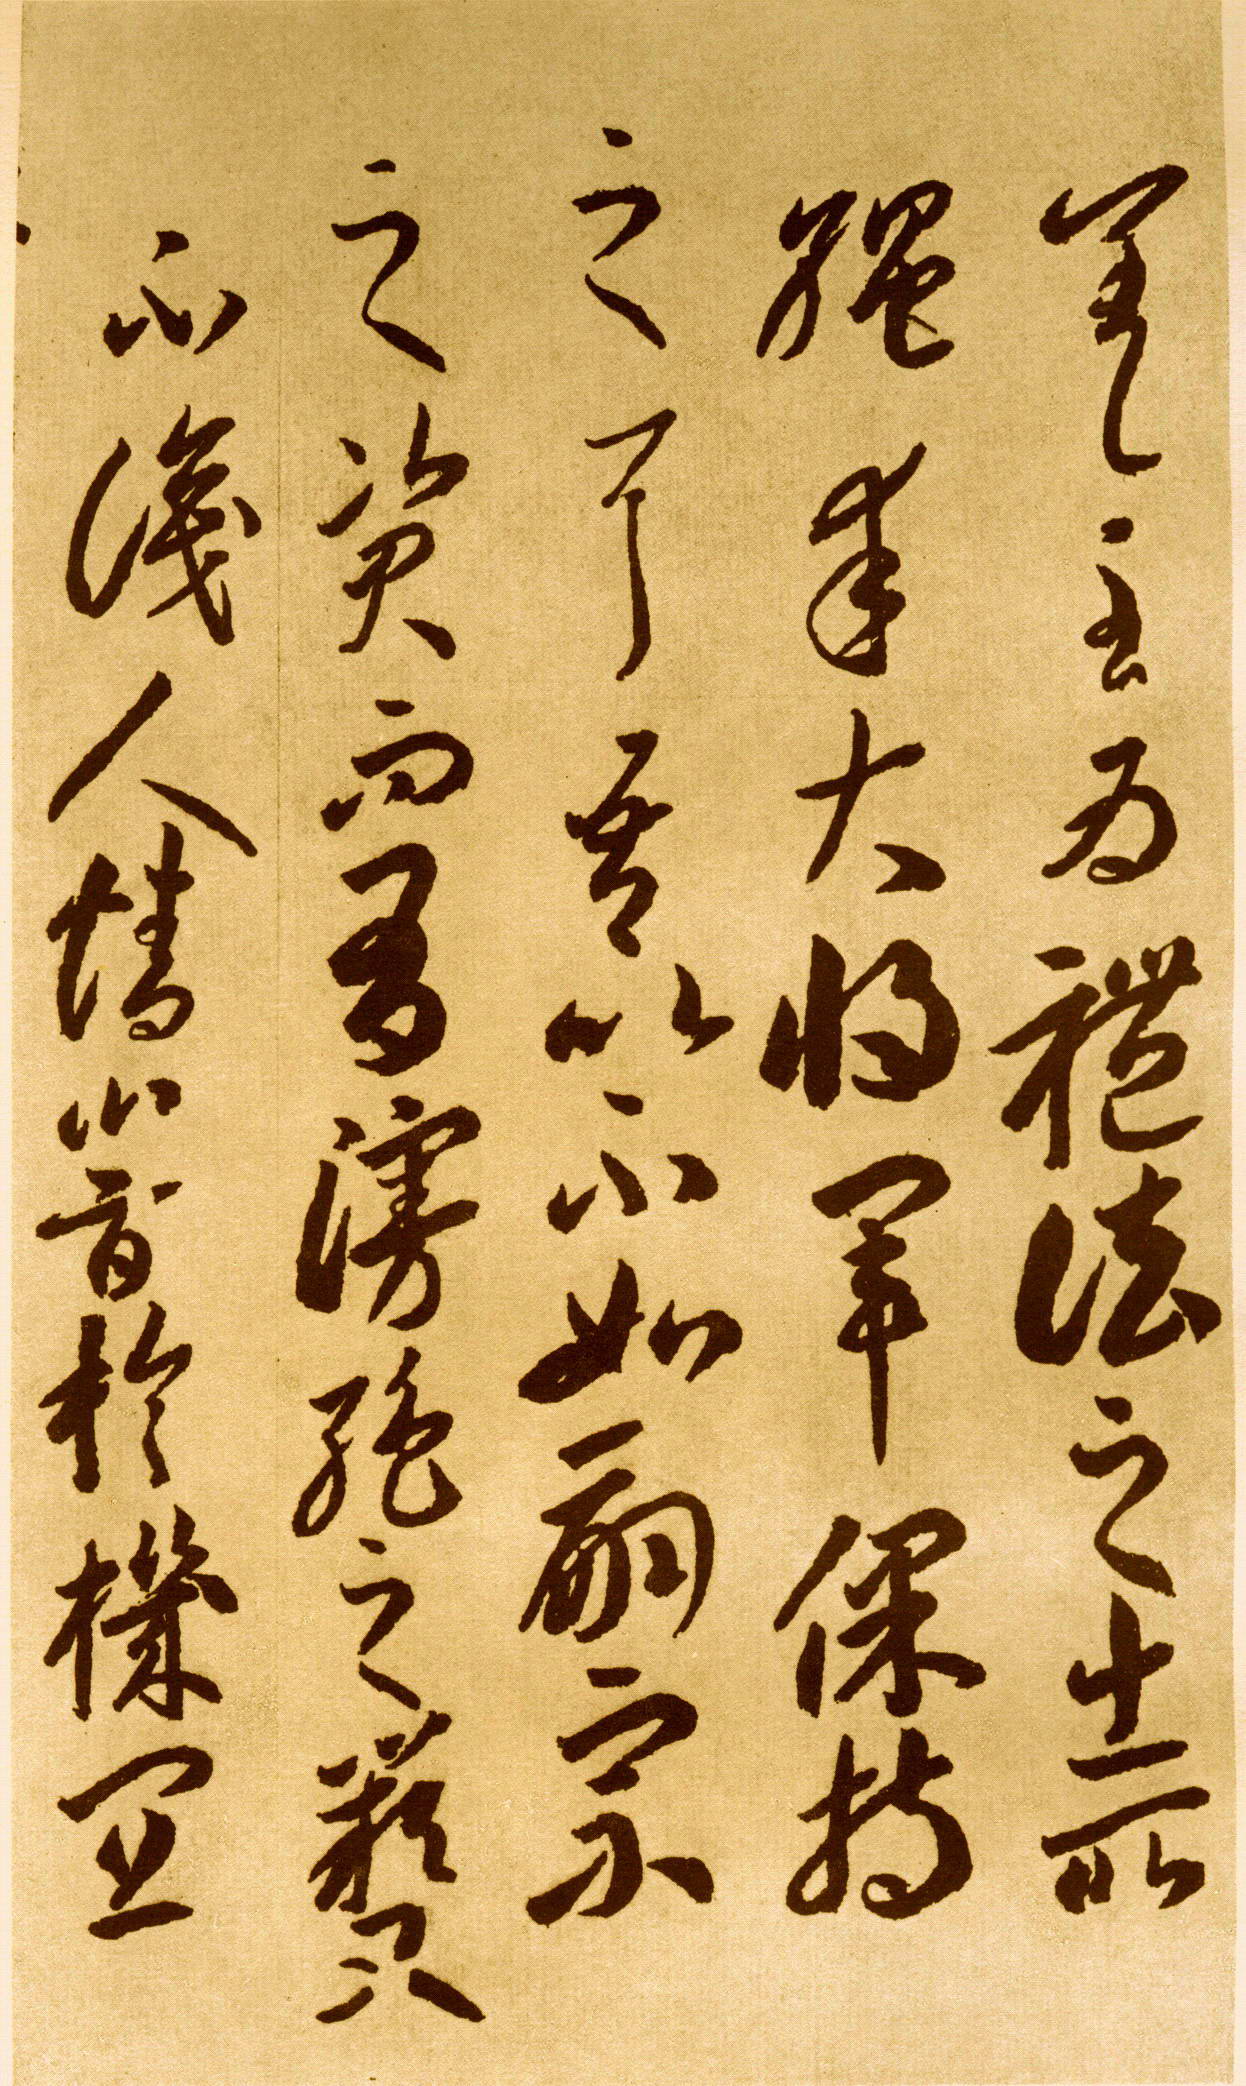 差至為禮法之士所
繩幸大將軍保持
之耳吾以不如嗣宗
之資而有慢弛之闕又
不識人情闇於機宜